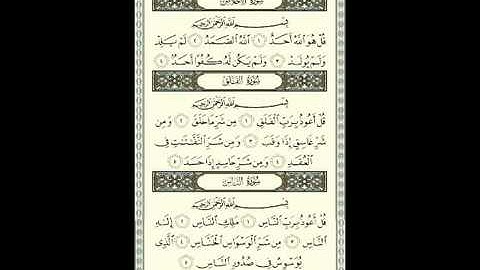 سُورَةُ الإِخْلَاصِ
بِسْمِ ٱللَّهِ ٱلرَّحْمَٰنِ ٱلرَّحِيمِ
قُلْ هُوَ ٱللَّهُ أَحَدٌ ١ ٱللَّهُ ٱلصَّمَدُ ٢ لَمْ يَلِدْ
وَلَمْ يُولَدْ ٣ وَلَمْ يَكُن لَّهُۥ كُفُوًا أَحَدٌۢ ٤
سُورَةُ الفَلَقِ
بِسْمِ ٱللَّهِ ٱلرَّحْمَٰنِ ٱلرَّحِيمِ
قُلْ أَعُوذُ بِرَبِّ ٱلْفَلَقِ ١ مِن شَرِّ مَا خَلَقَ ٢ وَمِن
شَرِّ غَاسِقٍ إِذَا وَقَبَ ٣ وَمِن شَرِّ ٱلنَّفَّٰثَٰتِ فِى
ٱلْعُقَدِ ٤ وَمِن شَرِّ حَاسِدٍ إِذَا حَسَدَ ٥
سُورَةُ النَّاسِ
بِسْمِ ٱللَّهِ ٱلرَّحْمَٰنِ ٱلرَّحِيمِ
قُلْ أَعُوذُ بِرَبِّ ٱلنَّاسِ ١ مَلِكِ ٱلنَّاسِ ٢ إِلَٰهِ
ٱلنَّاسِ ٣ مِن شَرِّ ٱلْوَسْوَاسِ ٱلْخَنَّاسِ ٤ ٱلَّذِى
يُوَسْوِسُ فِى صُدُورِ ٱلنَّاسِ ٥